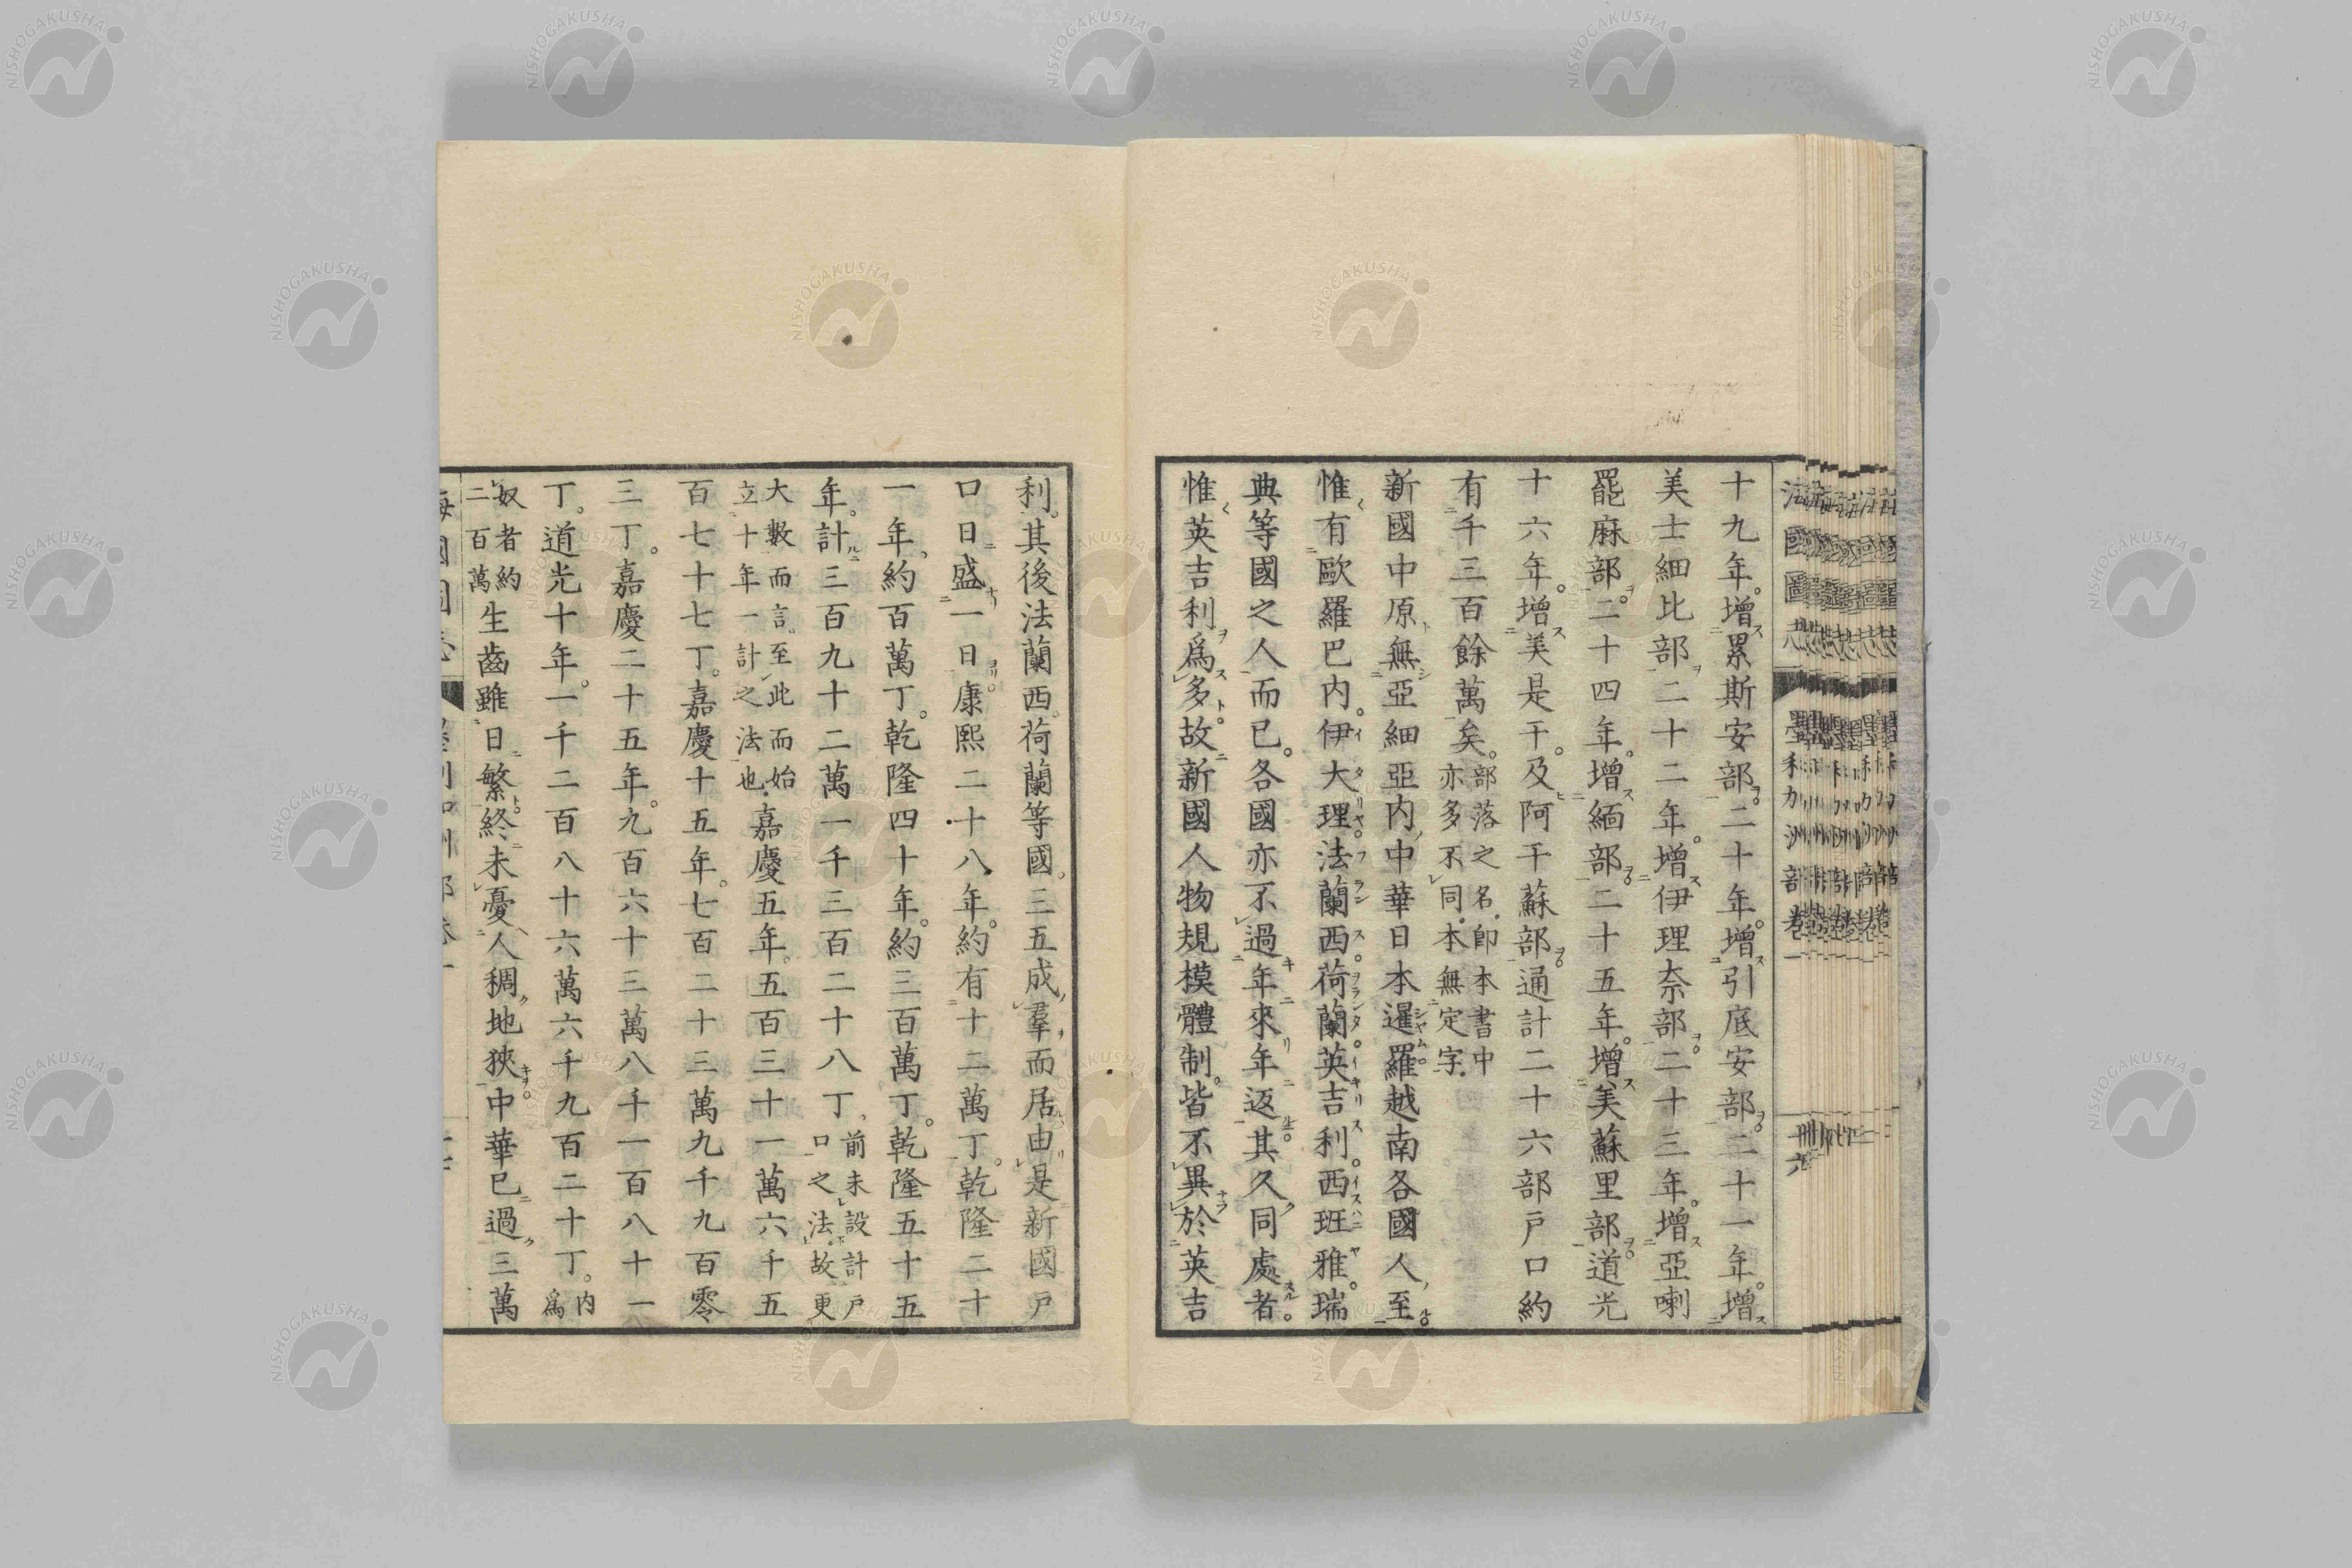 十九年。增累斯安部。二十年。增引底安部。二十一年。增
美士細比部二十二年。增伊理奈部。二十三年。增亞喇
罷麻部。二十四年。增緬部。二十五年。增美蘇里部。道光
十六年。增美是干。及阿干蘇部。通計二十六部戶口約
有千三百餘萬矣。部落之名。卽本書中
亦多不同。本無定字。
新國中原無亞細亞內中華日本暹羅越南各國人至。
惟有歐羅巴內。伊大理。法蘭西。荷蘭。英吉利。西班雅。瑞
典等國之人而已。各國亦不過年來年返。其久同處者。
惟英吉利爲多。故新國人物規模體制。皆不異於英吉
利。其後法蘭西。荷蘭等國。三五成羣而居。由是新國戶
口日盛一日。康熙二十八年。約有十二萬丁。乾隆二十
一年。約百萬丁。乾隆四十年。約三百萬丁。乾隆五十五
年。計三百九十二萬一千三百二十八丁。前未設計戶
口之法。故更
大數而言。至此而始
立十年一計之法也。嘉慶五年。五百三十一萬六千五
百七十七丁。嘉慶十五年。七百二十三萬九千九百零
三丁。嘉慶二十五年。九百六十三萬八千一百八十一
丁。道光十年。一千二百八十六萬六千九百二十丁。內
爲
奴者約
二百萬生齒雖日繁。終未憂人稠地狹。中華已過三萬
海國圖志
墨利加洲部卷一
NISHOGAKUSHA